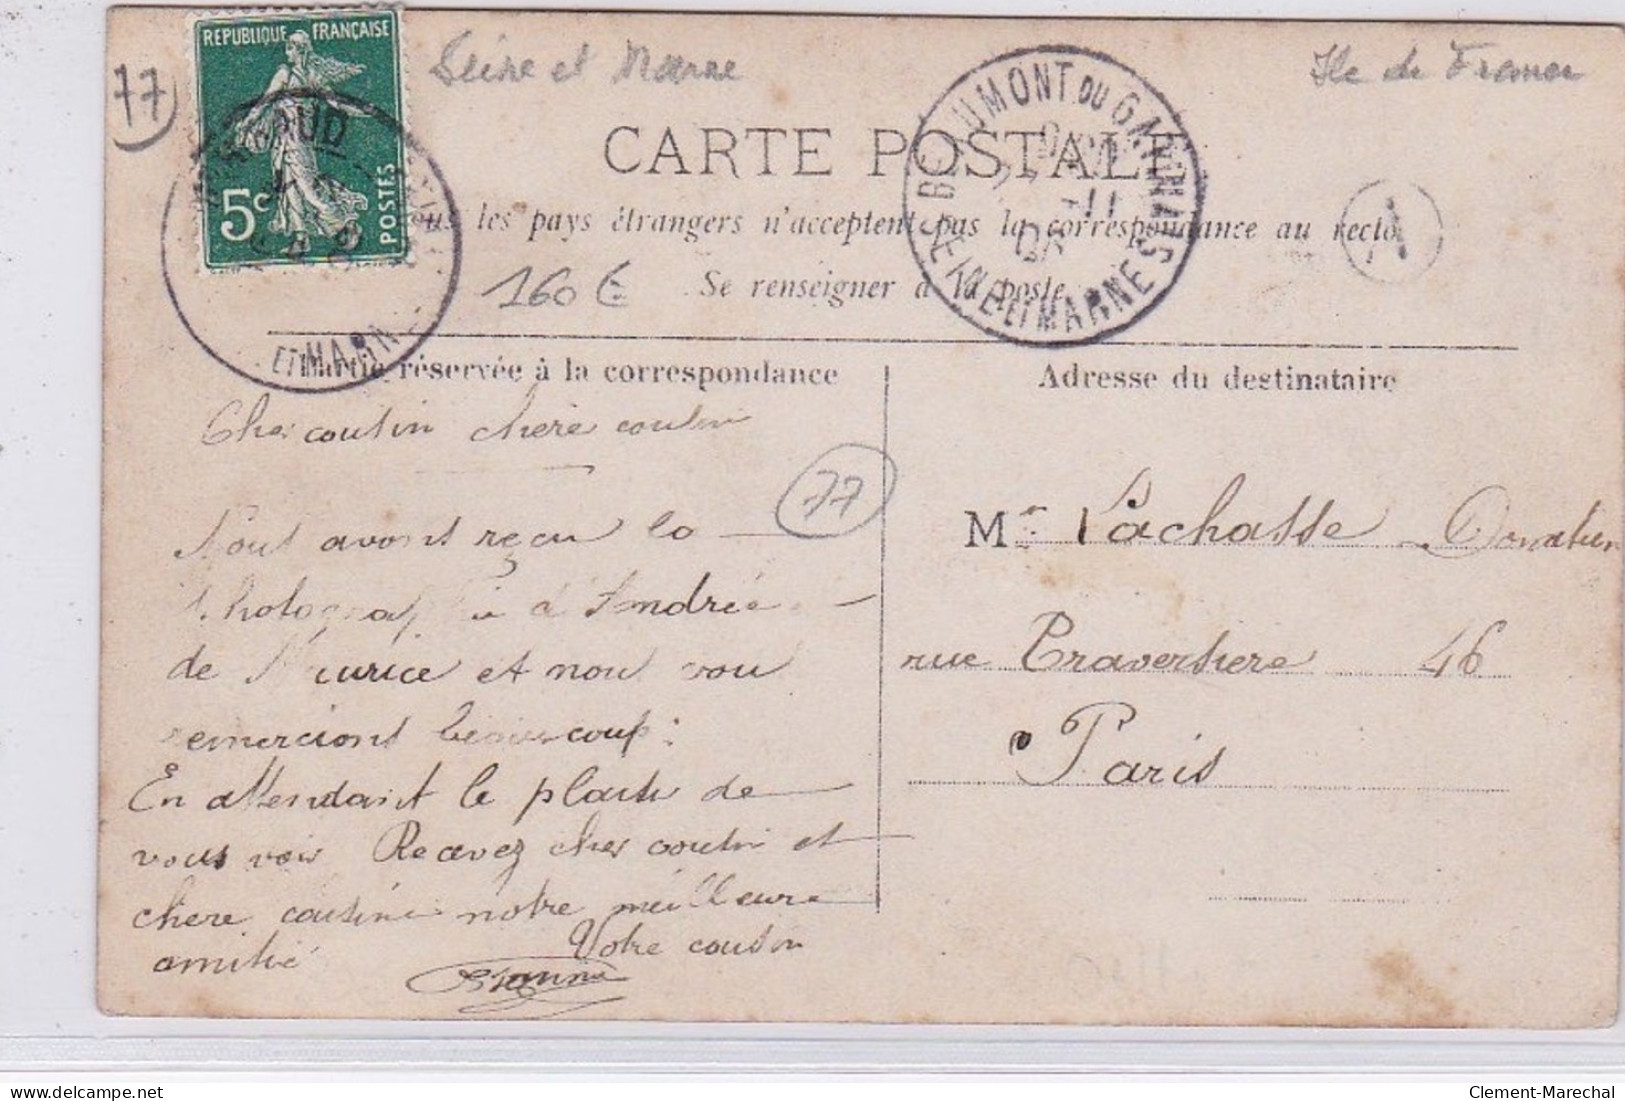 77
REPUBLIQUE FRANÇAISE
5c POSTES
Seine et Marne
Ile de France
CARTE POSTALE
BEAUMONT DU GATINAIS
SEINE ET MARNE
ET MARNE
les pays étrangers n'acceptent pas la correspondance au recto
160 €
Se renseigner à la poste
Partie réservée à la correspondance
Adresse du destinataire
Cher cousin chere cousin
77
Nous avons reçu la
Photographie d'Andrée
de Maurice et nou vou
remercions beaucoup:
En attendant le plaisir de
vous voir Recevez cher cousin et
chere cousine notre meilleure
amitié
Votre cousin
Mr Lachasse Donatien
rue Traversiere 46
Paris
Clement-Marechal
delcampe.net